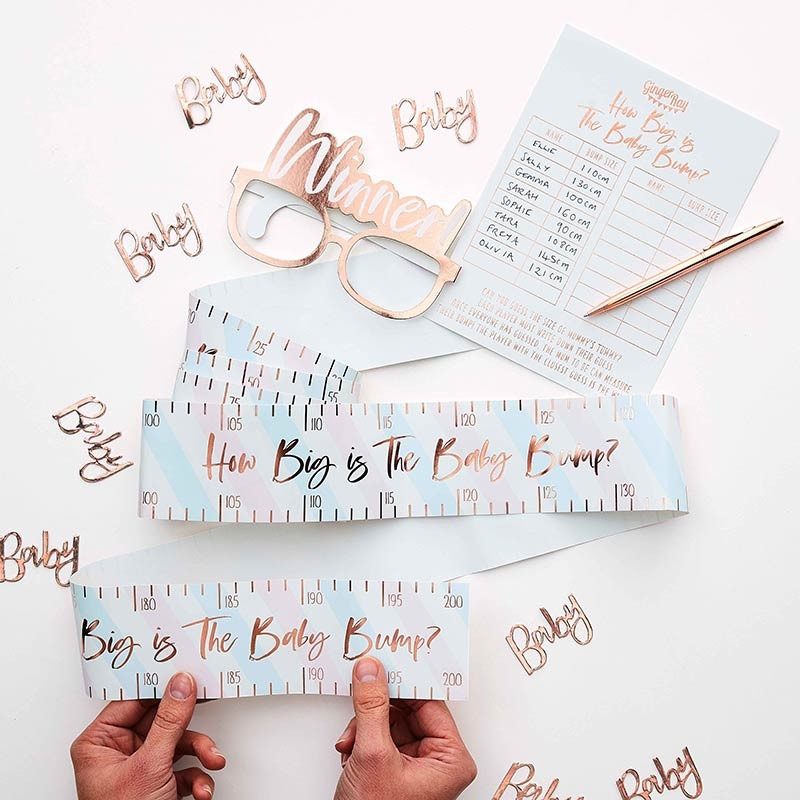 Baby
Baby
Winner
Baby
GingerRay
How Big is
The Baby Bump?
NAME BUMP SIZE
ELLIE 110cm
SALLY 130cm
GEMMA 100cm
SARAH 160cm
SOPHIE 90cm
TARA 108cm
FREYA 145cm
OLIVIA 121cm
NAME BUMP SIZE
CAN YOU GUESS THE SIZE OF MUMMY'S TUMMY?
EACH PLAYER MUST WRITE DOWN THEIR GUESS.
ONCE EVERYONE HAS GUESSED, THE MUM TO BE CAN MEASURE
THEIR BUMP! THE PLAYER WITH THE CLOSEST GUESS IS THE
25
50 55
75 80
100 105 110 115 120 125 130
How Big is The Baby Bump?
100 105 110 115 120 125 130
Baby
Baby
180 185 190 195 200
Big is The Baby Bump?
180 185 190 195 200
Baby
Baby
Baby